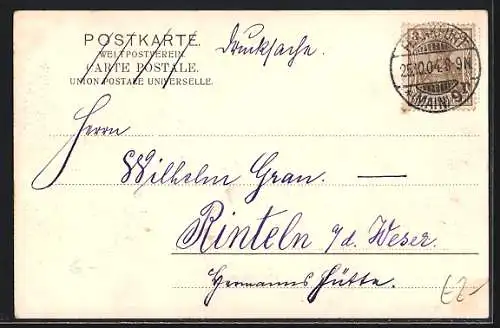 POSTKARTE.
WELTPOSTVEREIN
CARTE POSTALE.
UNION POSTALE UNIVERSELLE.
Drucksache.
FRANKFURT
25.10.04. 8-9N
(MAIN)
Herrn
Wilhelm Gran. —
Rinteln a/d. Weser.
Hermanns Hütte.